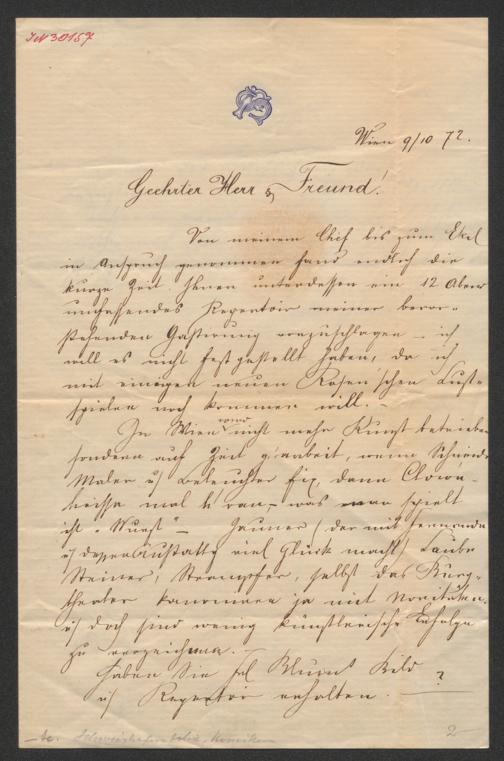 IN 30157
Wien 9/10 72.
Geehrter Herr & Freund!
Von meinem Chef bis zum Ekel
in Anspruch genommen fand endlich die
kurze Zeit Ihnen unterdessen ein 12 Abend
umfassendes Repertoir meiner bevor-
stehenden Gastirung vorzuschlagen – ich
will es nicht festgestellt haben, da ich
mit einigen neuen Rosen'schen Lust-
spielen noch kommen will. –
In Wien wird nicht mehr Kunst betrieben
sondern auf Zeit gearbeit, wenn Schneider
Maler u) Beleuchter fix, dann Clown
heisse mal 'ran – was man spielt
ist "Wurst" – Jauner (der mit Fernande
u) dessen Austattg viel Glück macht) Laube
Steiner, Strampfer, selbst das Burg-
theater kommen ja mit Novitäten
u) doch sind wenig künstlerische Erfolge
zu verzeichnen. –
Haben Sie Bild
u) Repertoir erhalten. – ?
2